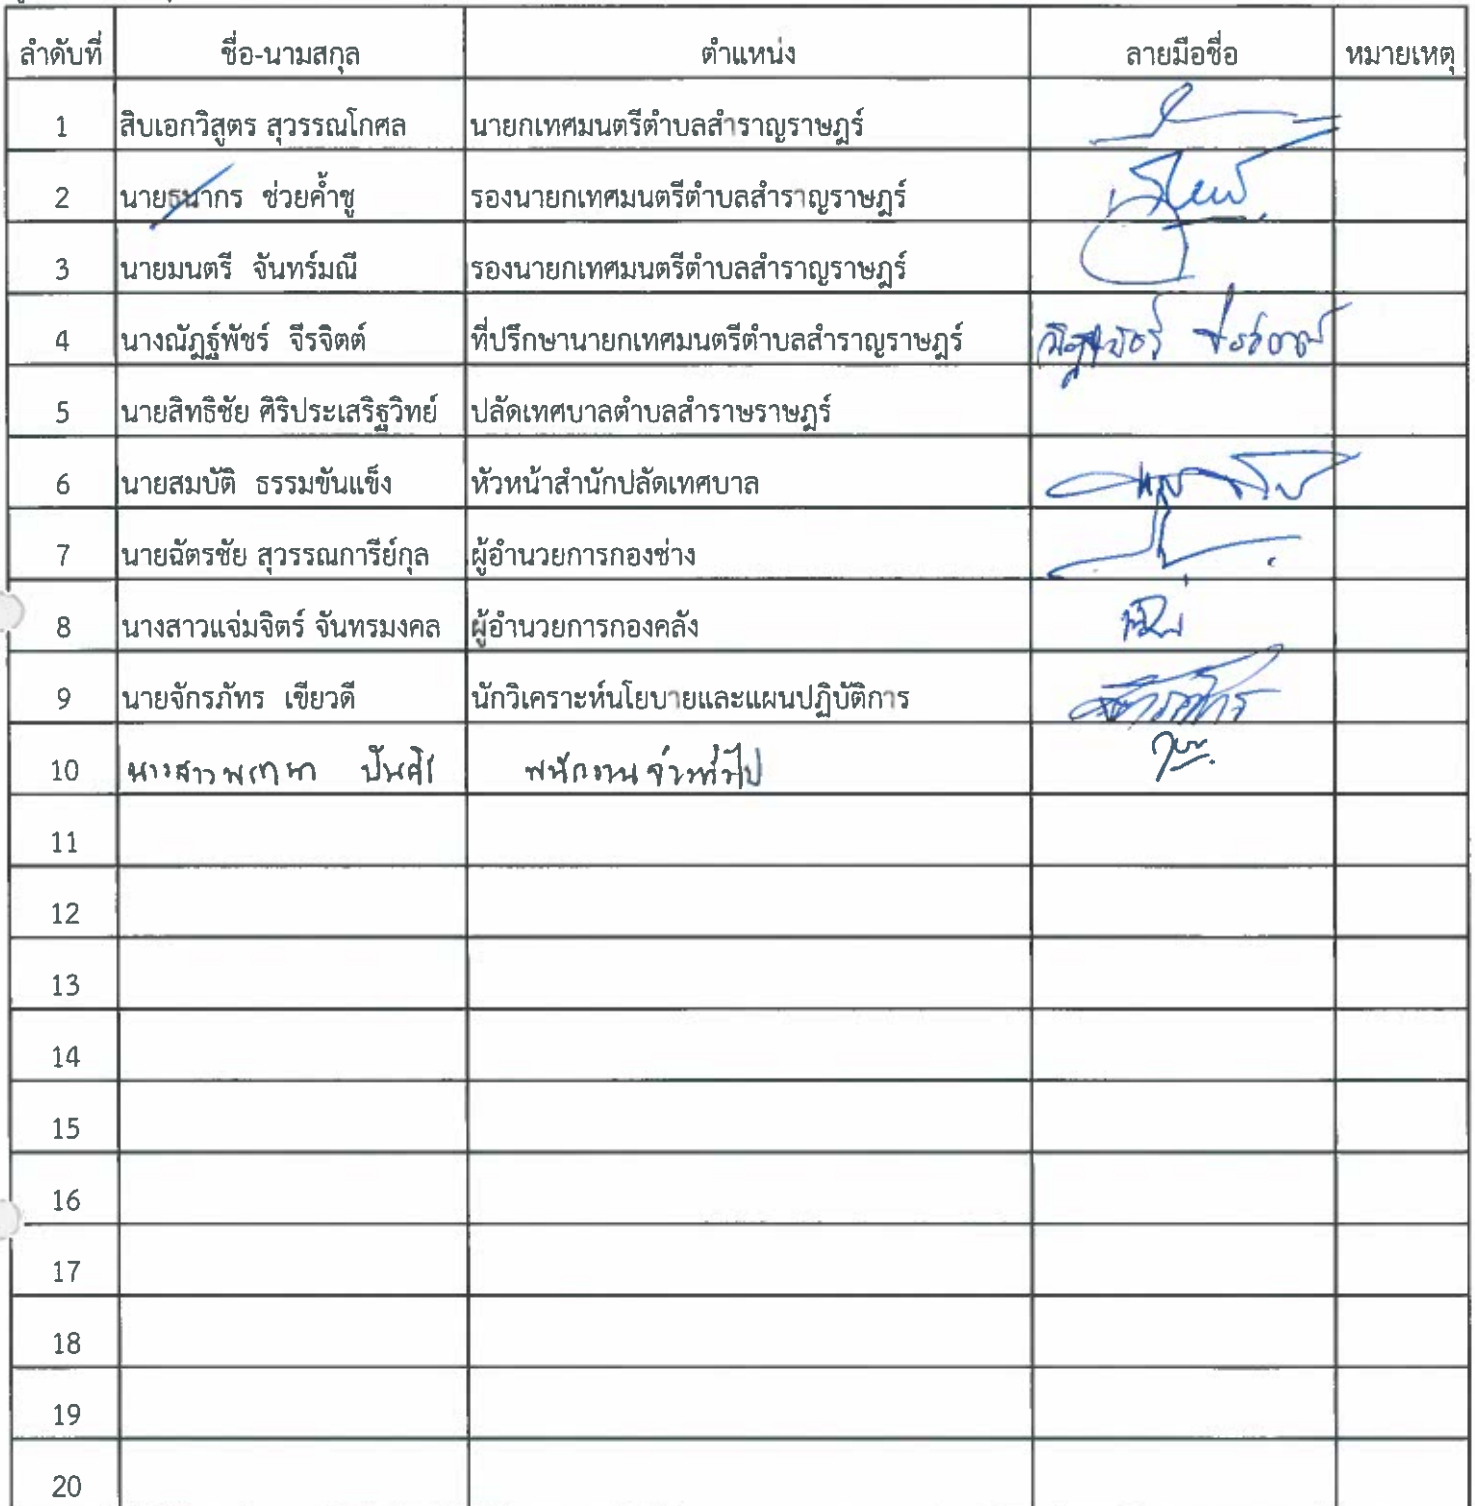 ลำดับที่ ชื่อ-นามสกุล ตำแหน่ง ลายมือชื่อ หมายเหตุ
1 สิบเอกวิสูตร สุวรรณโกศล นายกเทศมนตรีตำบลสำราญราษฎร์
2 นายธนากร ช่วยค้ำชู รองนายกเทศมนตรีตำบลสำราญราษฎร์
3 นายมนตรี จันทร์มณี รองนายกเทศมนตรีตำบลสำราญราษฎร์
4 นางณัฏฐ์พัชร์ จีรจิตต์ ที่ปรึกษานายกเทศมนตรีตำบลสำราญราษฎร์
5 นายสิทธิชัย ศิริประเสริฐวิทย์ ปลัดเทศบาลตำบลสำราษราษฎร์
6 นายสมบัติ ธรรมขันแข็ง หัวหน้าสำนักปลัดเทศบาล
7 นายฉัตรชัย สุวรรณการีย์กุล ผู้อำนวยการกองช่าง
8 นางสาวแจ่มจิตร์ จันทรมงคล ผู้อำนวยการกองคลัง
9 นายจักรภัทร เขียวดี นักวิเคราะห์นโยบายและแผนปฏิบัติการ
10 นางสาว พนักงานจ้างทั่วไป
11
12
13
14
15
16
17
18
19
20